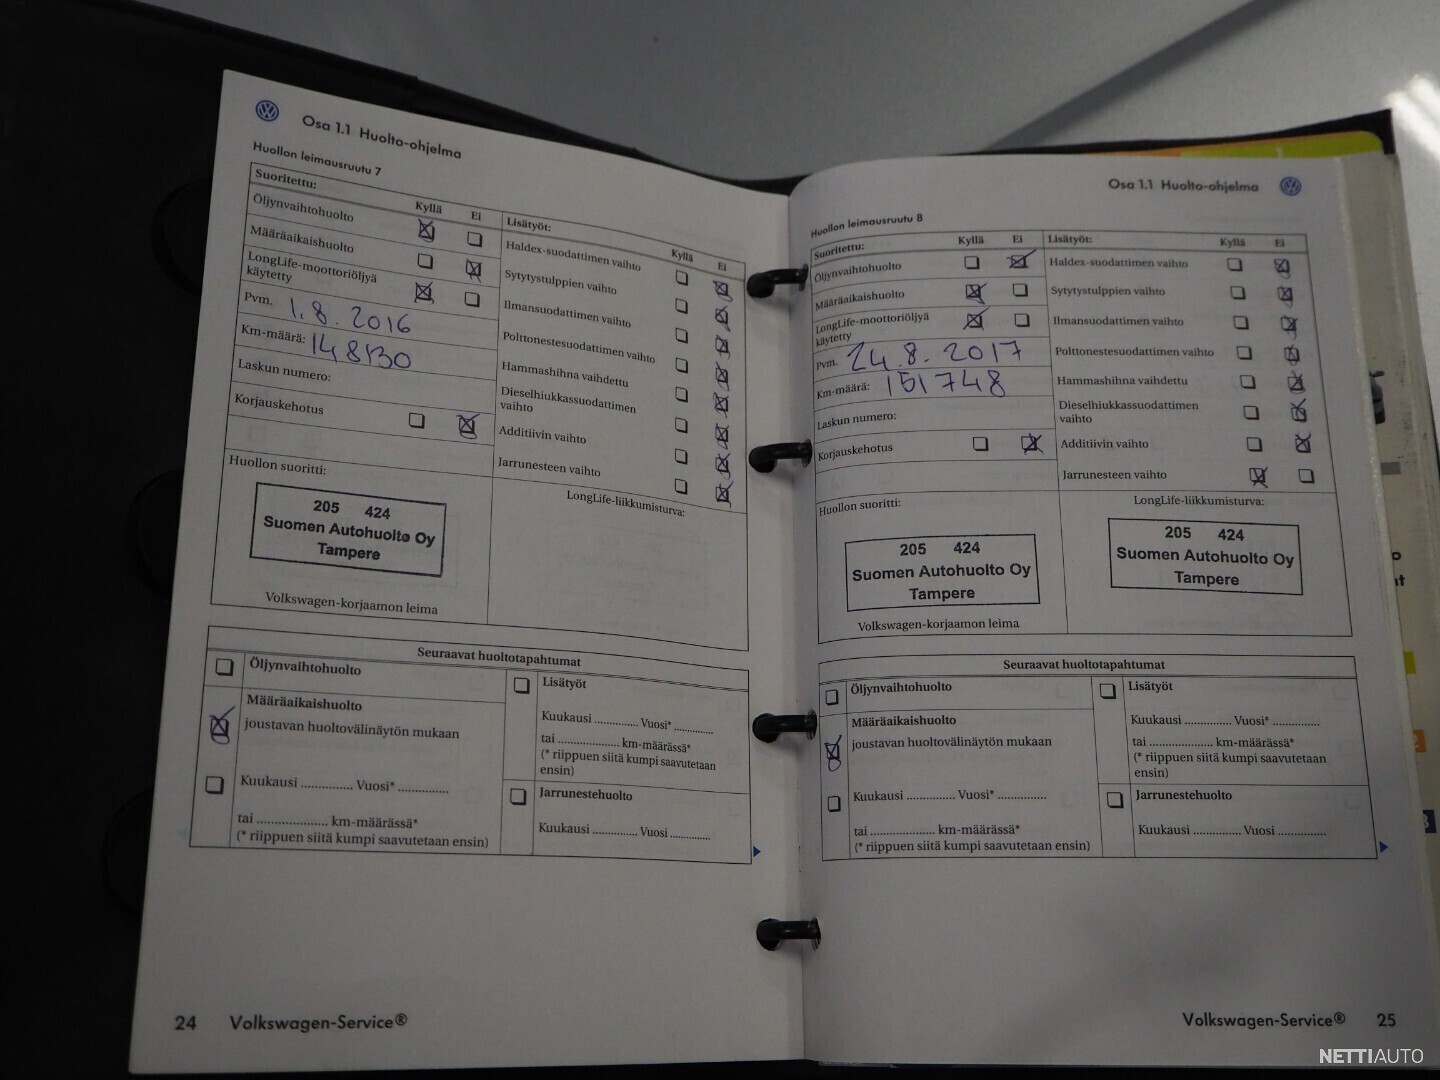 Osa 1.1 Huolto-ohjelma
Huollon leimausruutu 7
Suoritettu:
Kyllä Ei
Öljynvaihtohuolto
Määräaikaishuolto
LongLife-moottoriöljyä
käytetty
Pvm. 1.8.2016
Km-määrä: 148130
Laskun numero:
Korjauskehotus
Huollon suoritti:
205 424
Suomen Autohuolto Oy
Tampere
Volkswagen-korjaamon leima
Lisätyöt:
Kyllä Ei
Haldex-suodattimen vaihto
Sytytystulppien vaihto
Ilmansuodattimen vaihto
Polttonestesuodattimen vaihto
Hammashihna vaihdettu
Dieselhiukkassuodattimen
vaihto
Additiivin vaihto
Jarrunesteen vaihto
LongLife-liikkumisturva:
Seuraavat huoltotapahtumat
Öljynvaihtohuolto
Määräaikaishuolto
joustavan huoltovälinäytön mukaan
Kuukausi .............. Vuosi* ..............
tai .................... km-määrässä*
(* riippuen siitä kumpi saavutetaan ensin)
Lisätyöt
Kuukausi .............. Vuosi* ..............
tai .................... km-määrässä*
(* riippuen siitä kumpi saavutetaan
ensin)
Jarrunestehuolto
Kuukausi .............. Vuosi ..............
24 Volkswagen-Service®
Osa 1.1 Huolto-ohjelma
Huollon leimausruutu 8
Suoritettu:
Kyllä Ei
Öljynvaihtohuolto
Määräaikaishuolto
LongLife-moottoriöljyä
käytetty
Pvm. 24.8.2017
Km-määrä: 151748
Laskun numero:
Korjauskehotus
Huollon suoritti:
205 424
Suomen Autohuolto Oy
Tampere
Volkswagen-korjaamon leima
Lisätyöt:
Kyllä Ei
Haldex-suodattimen vaihto
Sytytystulppien vaihto
Ilmansuodattimen vaihto
Polttonestesuodattimen vaihto
Hammashihna vaihdettu
Dieselhiukkassuodattimen
vaihto
Additiivin vaihto
Jarrunesteen vaihto
LongLife-liikkumisturva:
205 424
Suomen Autohuolto Oy
Tampere
Seuraavat huoltotapahtumat
Öljynvaihtohuolto
Määräaikaishuolto
joustavan huoltovälinäytön mukaan
Kuukausi .............. Vuosi* ..............
tai .................... km-määrässä*
(* riippuen siitä kumpi saavutetaan ensin)
Lisätyöt
Kuukausi .............. Vuosi* ..............
tai .................... km-määrässä*
(* riippuen siitä kumpi saavutetaan
ensin)
Jarrunestehuolto
Kuukausi .............. Vuosi ..............
Volkswagen-Service® 25
NETTIAUTO